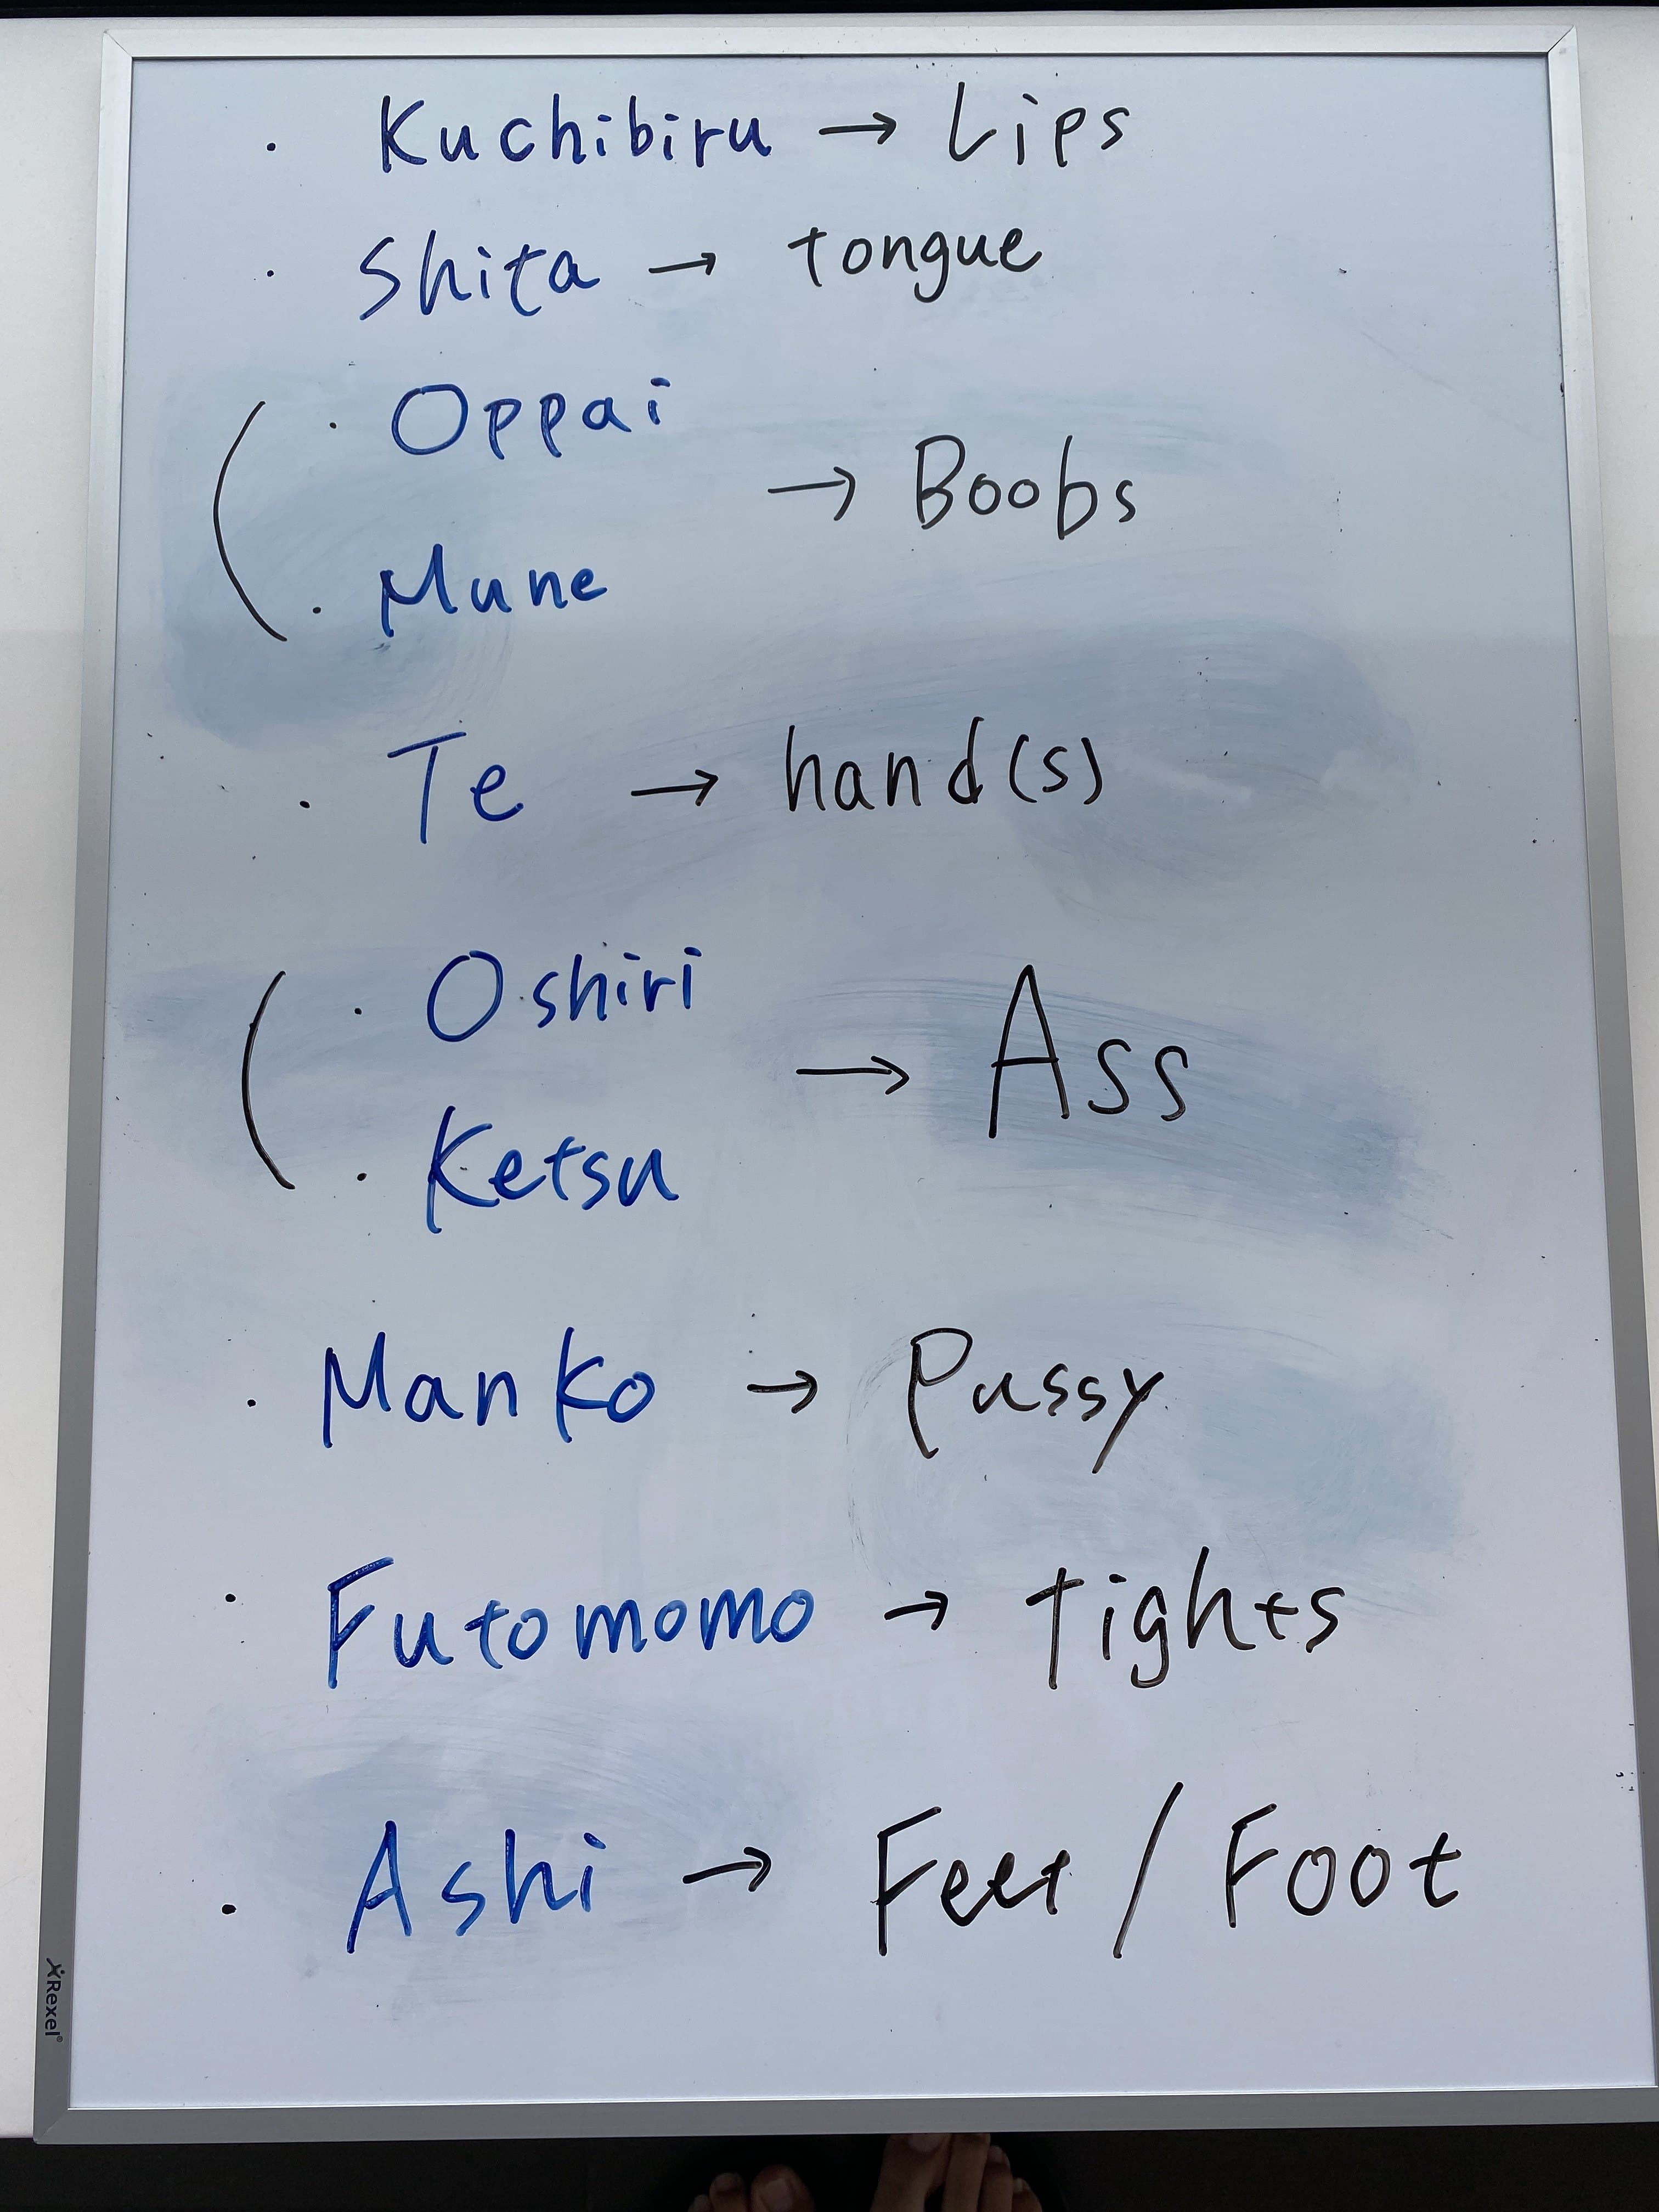 · Kuchibiru → Lips
· Shita → tongue
( · Oppai
→ Boobs
· Mune
· Te → hand(s)
( · Oshiri
→ Ass
· Ketsu
· Manko → Pussy
· Futomomo → tights
· Ashi → Feet / Foot
Rexel®